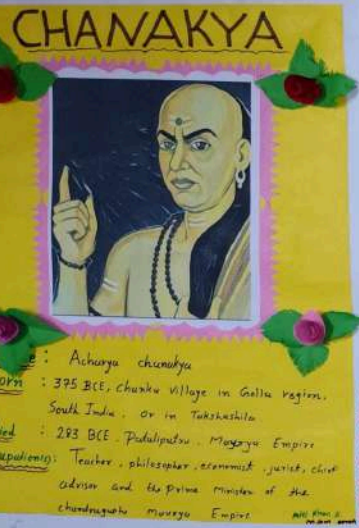 CHANAKYA
e : Acharya chanakya
orn : 375 BCE, Chanka village in Golla region,
South India. or in Takshashila
ied : 283 BCE. Pataliputra, Maurya Empire
upation(s): Teacher, philosopher, economist, jurist, chief
advisor and the prime Minister of the
chandragupta Maurya Empire